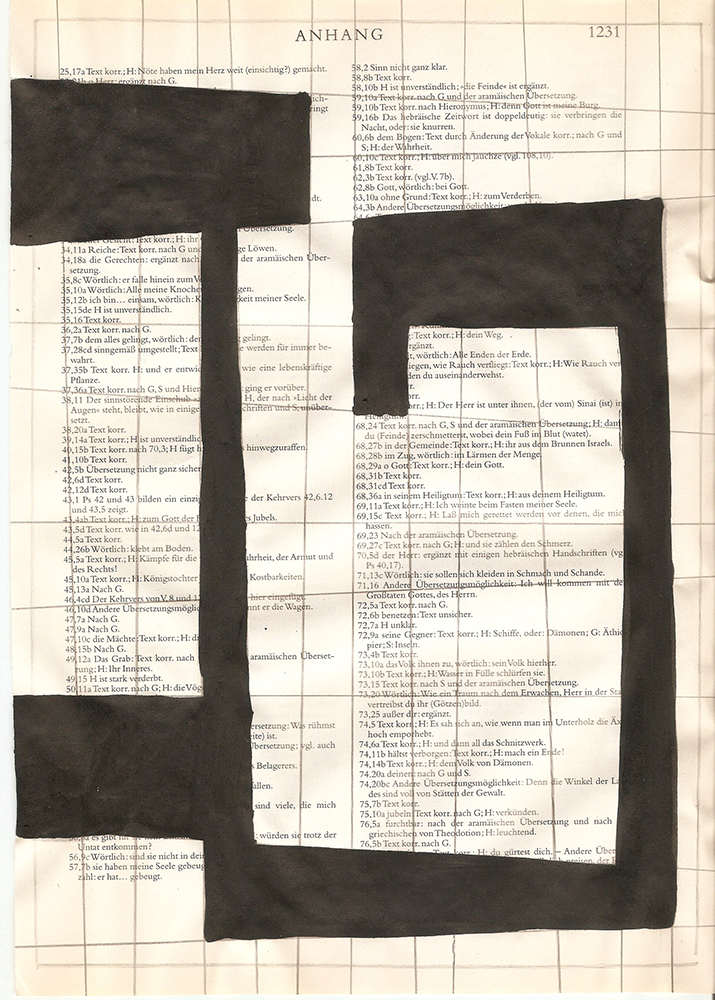 ANHANG
1231
25,17a Text korr.; H: Nöte haben mein Herz weit (einsichtig?) gemacht.
Herr: ergänzt nach G.
ich-
ringt
dt.
Übersetzung.
Text korr.; H: ihr
34,11a Reiche: Text korr. nach G un ge Löwen.
34,18a die Gerechten: ergänzt nach der aramäischen Über-
setzung.
35,8c Wörtlich: er falle hinein zum V
35,10a Wörtlich: Alle meine Knoche gen.
35,12b ich bin... einsam, wörtlich: K keit meiner Seele.
35,15de H ist unverständlich.
35,16 Text korr.
36,2a Text korr. nach G.
37,7b dem alles gelingt, wörtlich: de gelingt.
37,28cd sinngemäß umgestellt; Text e werden für immer be-
wahrt.
37,35b Text korr. H: und er entwic wie eine lebenskräftige
Pflanze.
37,36a Text korr. nach G, S und Hier ging er vorüber.
38,11 Der sinnstörende Einschub H, der nach »Licht der
Augen« steht, bleibt, wie in einige schriften und S, unüber-
setzt.
38,20a Text korr.
39,14a Text korr.; H ist unverständlic
40,15b Text korr. nach 70,3; H fügt h hinwegzuraffen.
41,10b Text korr.
42,5b Übersetzung nicht ganz sicher
42,6d Text korr.
42,12d Text korr.
43,1 Ps 42 und 43 bilden ein einzi e der Kehrvers 42,6.12
und 43,5 zeigt.
43,4ab Text korr.; H: zum Gott der s Jubels.
43,5d Text korr. wie in 42,6d und 12
44,5a Text korr.
44,26b Wörtlich: klebt am Boden.
45,5a Text korr.; H: Kämpfe für die ahrheit, der Armut und
des Rechts!
45,10a Text korr.; H: Königstochter Kostbarkeiten.
45,13a Nach G.
46,4cd Der Kehrvers von V. 8 und 12 hier eingefügt.
46,10d Andere Übersetzungsmögli nnt er die Wagen.
47,7a Nach G.
47,9a Nach G.
47,10c die Mächte: Text korr.; H: di
48,15b Nach G.
49,12a Das Grab: Text korr. nach aramäischen Überset-
zung; H: Ihr Inneres.
49,15 H ist stark verderbt.
50,11a Text korr. nach G; H: die Vög
ersetzung: Was rühmst
eite) ist.
bersetzung; vgl. auch
s Belagerers.
allen.
sind viele, die mich
würden sie trotz der
Untat entkommen?
56,9c Wörtlich: sind sie nicht in dei
57,7b sie haben meine Seele gebeug
zahl: er hat... gebeugt.
58,2 Sinn nicht ganz klar.
58,8b Text korr.
58,10b H ist unverständlich; »die Feinde« ist ergänzt.
59,10a Text korr. nach G und der aramäischen Übersetzung.
59,10b Text korr. nach Hieronymus; H: denn Gott ist meine Burg.
59,16b Das hebräische Zeitwort ist doppeldeutig: sie verbringen die
Nacht, oder: sie knurren.
60,6b dem Bogen: Text durch Änderung der Vokale korr.; nach G und
S; H: der Wahrheit.
60,10c Text korr.; H: über mich jauchze (vgl. 108,10).
61,8b Text korr.
62,3b Text korr. (vgl. V. 7b).
62,8b Gott, wörtlich: bei Gott.
63,10a ohne Grund: Text korr.; H: zum Verderben.
64,3b Andere Übersetzungsmöglichkeit:
: Text korr.; H: dein Weg.
rgänzt.
t, wörtlich: Alle Enden der Erde.
iegen, wie Rauch verfliegt: Text korr.; H: Wie Rauch ver
den du auseinanderwehst.
rr.
orr.
orr.; H: Der Herr ist unter ihnen, (der vom) Sinai (ist) in
Heiligtum.
68,24 Text korr. nach G, S und der aramäischen Übersetzung; H: dam
du (Feinde) zerschmetterst, wobei dein Fuß im Blut (watet).
68,27b in der Gemeinde: Text korr.; H: ihr aus dem Brunnen Israels.
68,28b im Zug, wörtlich: im Lärmen der Menge.
68,29a o Gott: Text korr.; H: dein Gott.
68,31b Text korr.
68,31cd Text korr.
68,36a in seinem Heiligtum: Text korr.; H: aus deinem Heiligtum.
69,11a Text korr.; H: Ich weinte beim Fasten meiner Seele.
69,15c Text korr.; H: Laß mich gerettet werden vor denen, die mich
hassen.
69,23 Nach der aramäischen Übersetzung.
69,27c Text korr. nach G; H: und sie zählen den Schmerz.
70,5d der Herr: ergänzt mit einigen hebräischen Handschriften (vg
Ps 40,17).
71,13c Wörtlich: sie sollen sich kleiden in Schmach und Schande.
71,16 Andere Übersetzungsmöglichkeit: Ich will kommen mit de
Großtaten Gottes, des Herrn.
72,5a Text korr. nach G.
72,6b benetzen: Text unsicher.
72,7a H unklar.
72,9a seine Gegner: Text korr.; H: Schiffe, oder: Dämonen; G: Äthio
pier; S: Inseln.
73,4b Text korr.
73,10a das Volk ihnen zu, wörtlich: sein Volk hierher.
73,10b Text korr.; H: Wasser in Fülle schlürfen sie.
73,15 Text korr. nach S und der aramäischen Übersetzung.
73,20 Wörtlich: Wie ein Traum nach dem Erwachen, Herr in der Sta
vertreibst du ihr (Götzen)bild.
73,25 außer dir: ergänzt.
74,5 Text korr.; H: Es sah sich an, wie wenn man im Unterholz die Äx
hoch emporhebt.
74,6a Text korr.; H: und dann all das Schnitzwerk.
74,11b hältst verborgen: Text korr.; H: mach ein Ende!
74,14b Text korr.; H: dem Volk von Dämonen.
74,20a deinen: nach G und S.
74,20bc Andere Übersetzungsmöglichkeit: Denn die Winkel der La
des sind voll von Stätten der Gewalt.
75,7b Text korr.
75,10a jubeln: Text korr. nach G; H: verkünden.
76,5a furchtbar: nach der aramäischen Übersetzung und nach
griechischen von Theodotion; H: leuchtend.
76,5b Text korr. nach G.
Text korr.; H: du gürtest dich. – Andere Über